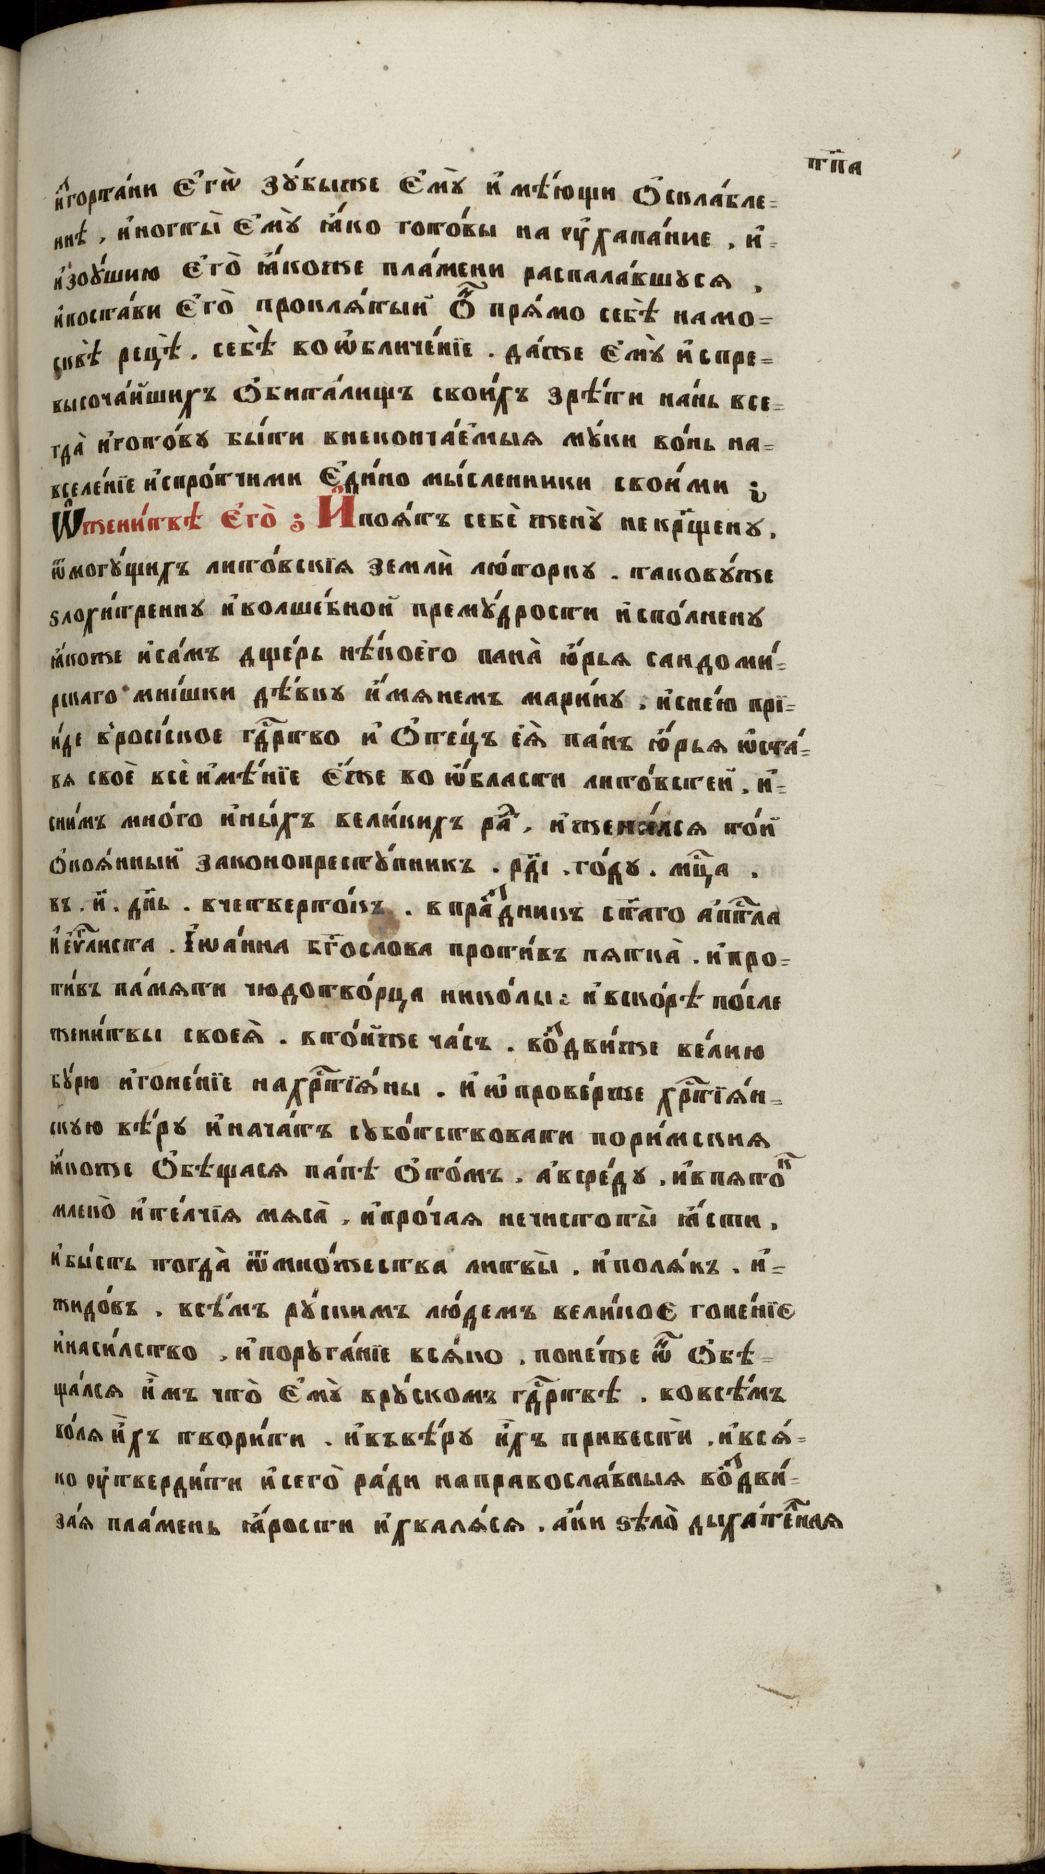 тп҃а
и҆гортани є҆гѡ̀ зꙋ́быже є҆мꙋ̀ и҆мѣ́ющи ѻ҆скла́бле=
ннѣ , и҆ногты̀ є҆мꙋ̀ ꙗ҆́ко гото́вы на ᲂу҆хапа́ние , и҆=
и҆зоу́шию є҆го̀ ꙗ҆́коже пла́мени распала́вшуся ,
и҆поста́ви є҆го̀ прокля́тый ѻ҆н̾ пря́мо себѣ̀ намо=
сквѣ̀ рецѣ̀ . себѣ̀ во ѡ҆бличе́нїе . да́же є҆мꙋ̀ и҆спре=
высоча́йшихъ ѻ҆бита́лищъ свои́хъ зрѣ́ти на́нь все=
гда̀ и҆гото́ву бы́ти внеконча́емыя мꙋ́ки во́нь на=
вселе́нїе и҆спро́тчими є҆ди́но мы́сленники свои́ми ;
Ѡ҆жени́твѣ є҆го̀ ; И҆поя́тъ себѐ жену̀ некрⷭ҇щену ,
ѿмогу́щихъ лито́вскїя земли̇̀ лю́торку . такову́же
ѕлохи́тренну и҆волше́бной прему́дрости и҆спо́лнену
ꙗ҆́коже и҆са́мъ дще́рь нѣ́коего пана̀ ю҆́рья сандоми́=
рскаго мни́шки дѣ́вку и҆́мянемъ мари́ну . и҆снею прїи=
и́де в̾росі́ское гдⷭ҇рство и҆ ѻ҆те́цъ є҆я̀ па́нъ ю҆́рья ѡ҆ста́=
вя своѐ всѐ и҆мѣ́нїе є҆́же во ѡ҆́бласти лито́встей , и҆=
сни́мъ мно́го и҆ны́хъ вели́кихъ рⷣа , и҆жени́лся то́й
ѻ҆кая́нный законопресту́пникъ . рд҃і . го́ду . мцⷭ҇а .
въ . и҃ . дн҃ь . вчетверто́къ . в праⷥ҇дникъ ст҃аго а҆пⷭ҇тла
и҆є҆ѵⷢ҇листа . І҆ѡа́нна бг҃ослова проти́въ пятка̀ . и҆про=
ти́въ па́мяти чюдотво́рца нико́лы ; и҆вско́рѣ по́сле
жени́твы своея̀ . вто́йже ча́съ . воⷥ҇дви́же ве́лию
бу́рю и҆гоне́нїе нахрⷭ҇тїя́ны . и҆ ѡ҆прове́рже хрⷭ҇тїя́н=
скую вѣ́ру и҆нача́тъ субо́тствовати пори́мския
ꙗ҆́коже ѻ҆бѣща́ся па́пѣ ѻ҆то́мъ . а҆вре́ду . и҆впято́ⷦ҇
млеко̀ и҆те́лчїя мяса̀ , и҆про́чая нечистоты̀ ꙗ҆́сти ,
и҆бы́сть тогда̀ ѿмно́жества литвы̀ . и҆поля́къ . и҆=
жидо́въ . всѣ́мъ рꙋ́скимъ лю́демъ вели́кое гоне́нїе
и҆наси́лство , и҆поруга́нїе вся́ко . поне́же ѻ҆н̾ ѻ҆бѣ=
ща́лся и҆̀мъ что̀ є҆мꙋ̀ вру́скомъ гдⷭ҇рствѣ . вовсѣ́мъ
во́ля и҆́хъ твори́ти . и҆въвѣ́ру и҆́хъ привести̇̀ . и҆вся́=
ко ᲂу҆тверди́ти и҆сего̀ ра́ди направосла́вныя воⷥ҇дви́=
за́я пла́мень ꙗ҆́рости и҆хваля́ся . а҆́ки ѕѣло̀ дыха́теⷧ҇ная